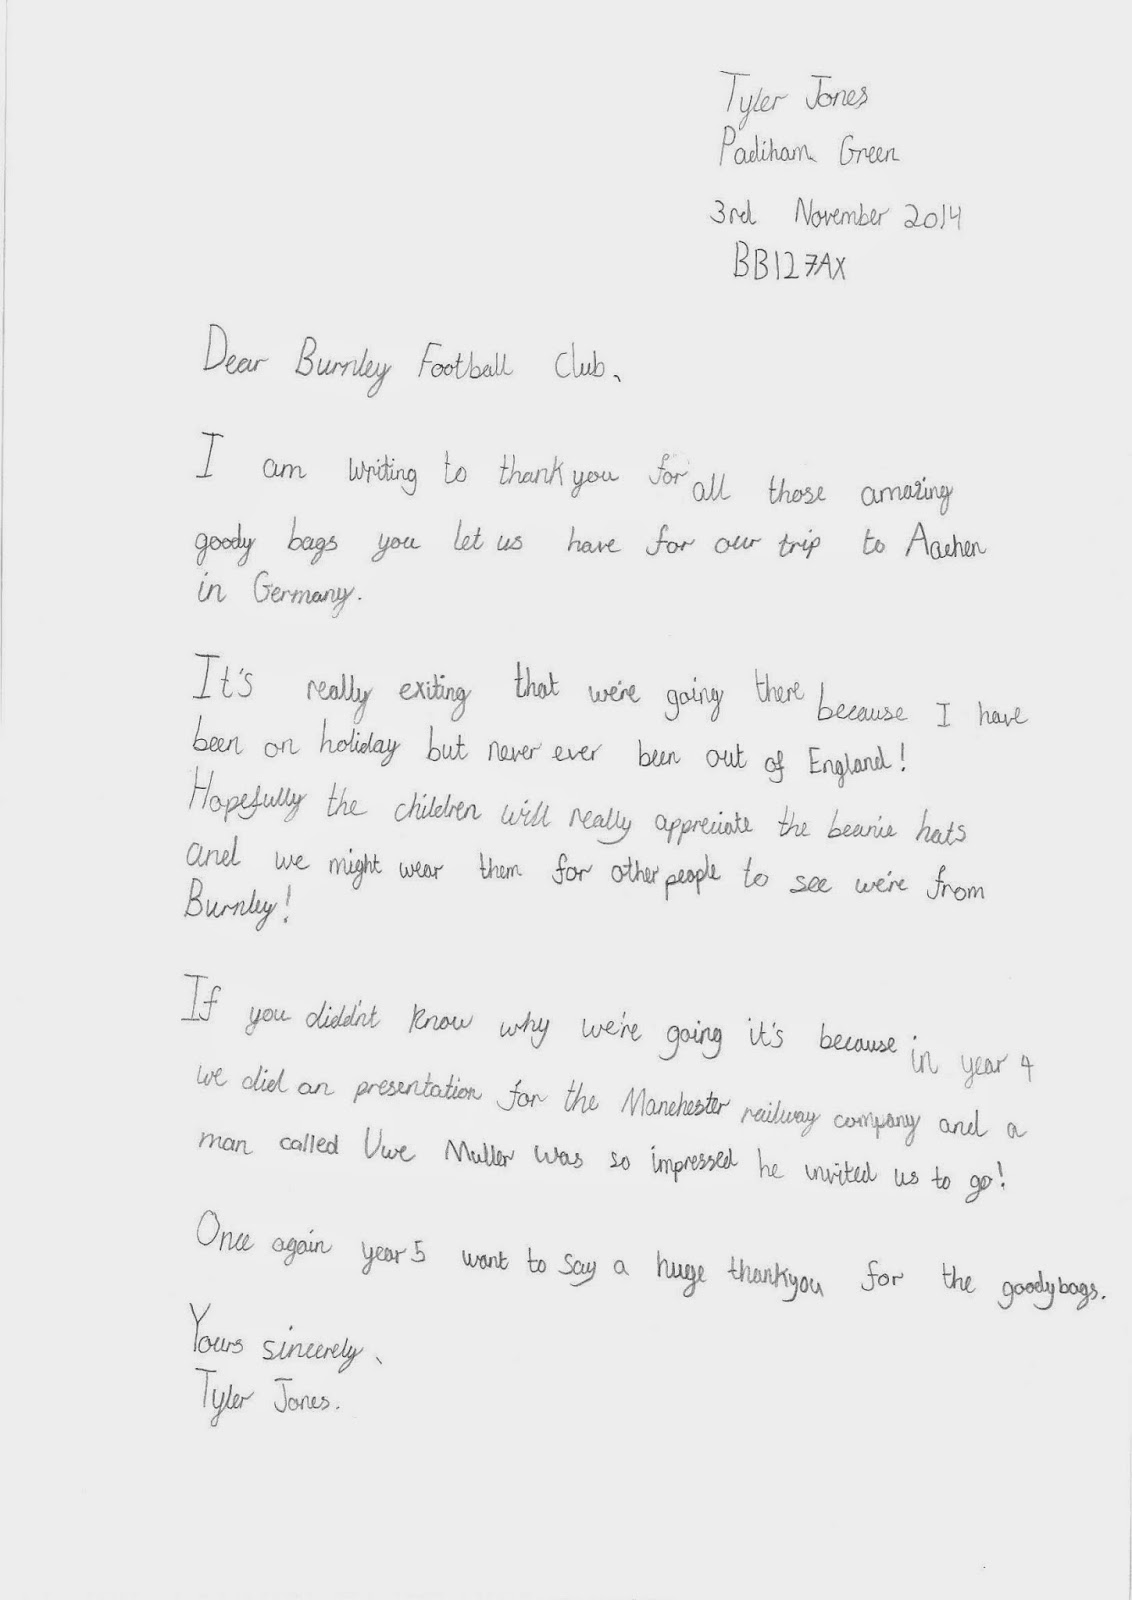 Tyler Jones
Padiham Green
3rd November 2014
BB12 7AX
Dear Burnley Football Club,
I am writing to thankyou for all those amazing
goody bags you let us have for our trip to Aachen
in Germany.
It's really exiting that we're going there because I have
been on holiday but never ever been out of England!
Hopefully the children will really appreciate the beanie hats
and we might wear them for other people to see we're from
Burnley!
If you didd'nt know why we're going it's because in year 4
we did an presentation for the Manchester railway company and a
man called Uwe Muller was so impressed he invited us to go!
Once again year 5 want to say a huge thankyou for the goodybags.
Yours sincerely,
Tyler Jones.